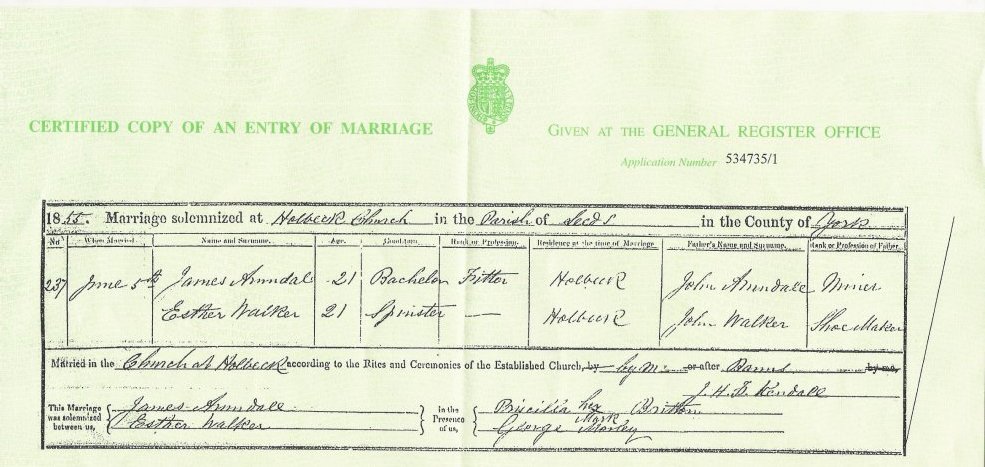 CERTIFIED COPY OF AN ENTRY OF MARRIAGE
GIVEN AT THE GENERAL REGISTER OFFICE
Application Number 534735/1
1855. Marriage solemnized at Holbeck Church in the Parish of Leeds in the County of York
No When Married. Name and Surname. Age. Condition. Rank or Profession. Residence at the time of Marriage Father's Name and Surname. Rank or Profession of Father.
237 June 5th James Arundale 21 Bachelor Fitter Holbeck John Arundale Miner
Esther Walker 21 Spinster — Holbeck John Walker Shoe Maker
Married in the Church at Holbeck according to the Rites and Ceremonies of the Established Church, by by me or after Banns by me,
J. H. F. Kendall
This Marriage was solemnized between us, James Arundale Esther Walker in the Presence of us, Priscilla her mark Britton George Morley